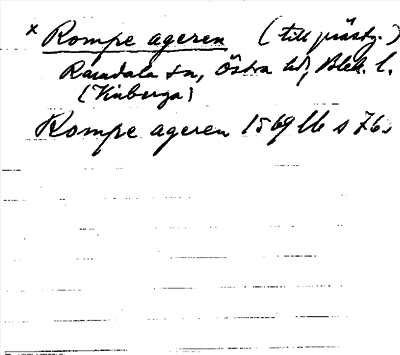 × Rompe ageren (till prästg.)
Ramdala sn, Östra hd, Blek. l.
(Vinberga)
Rompe ageren 1569 lb s 76.